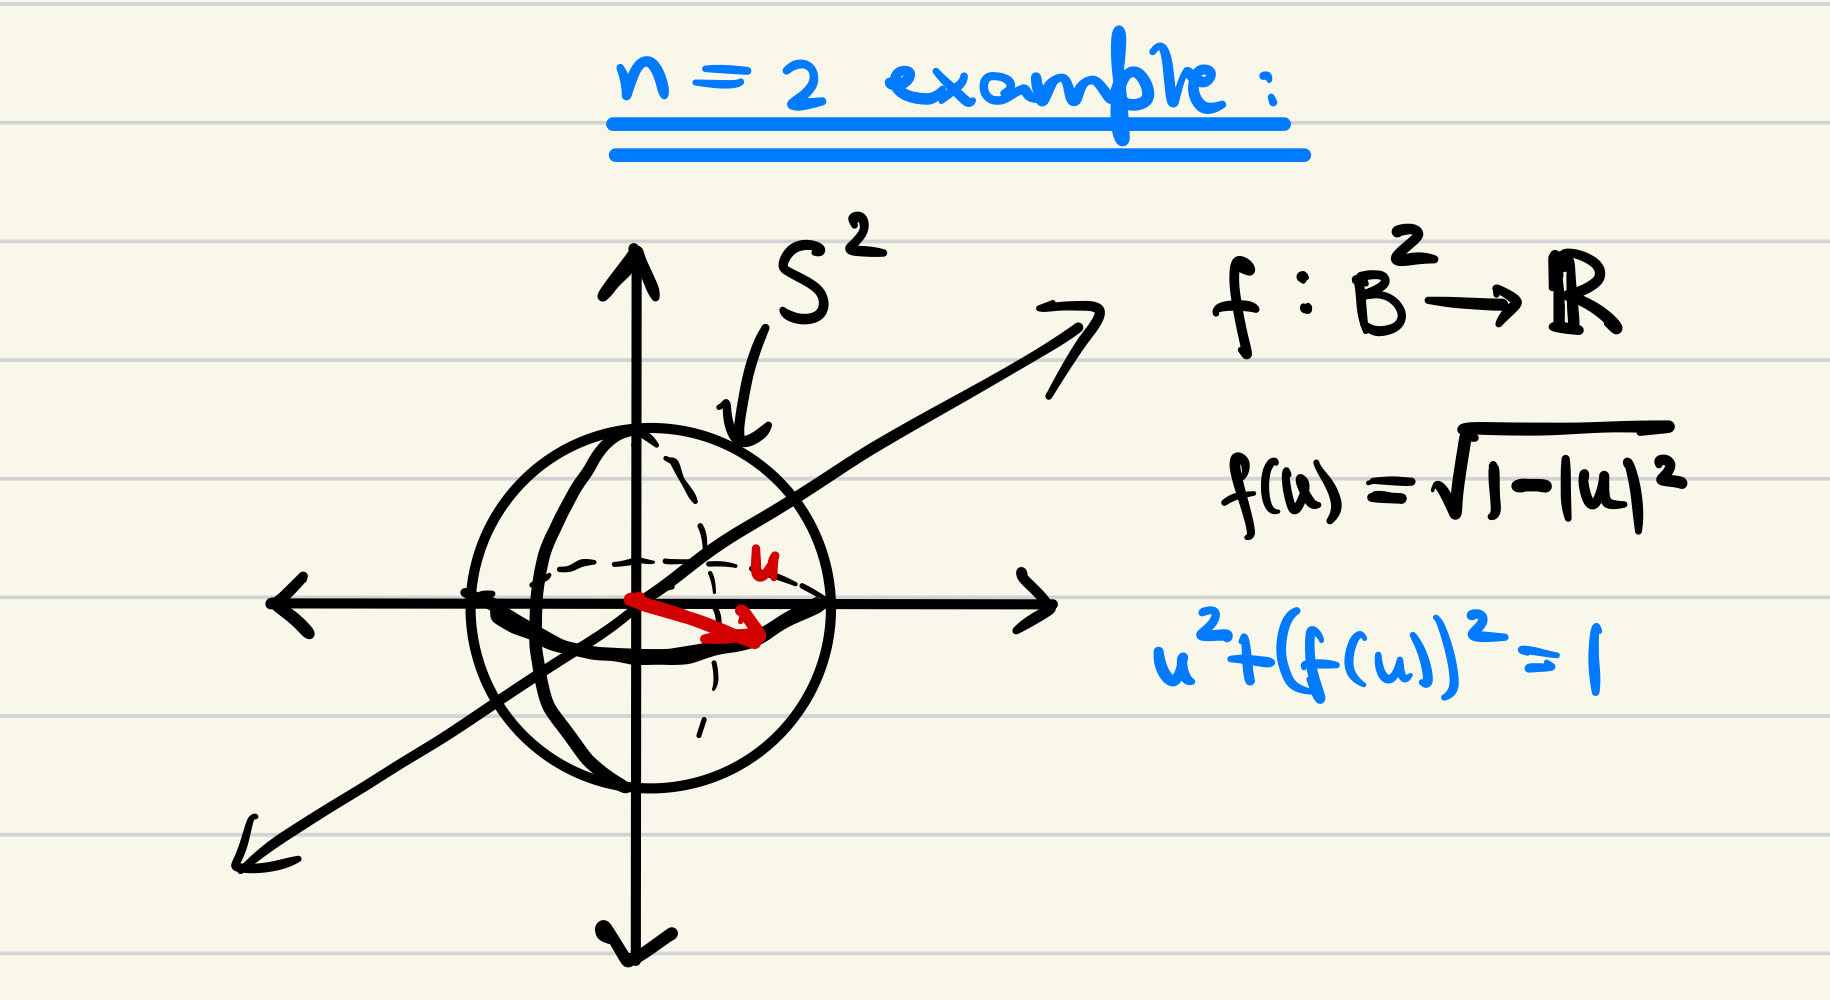 n = 2 example :
S²
f : B² → ℝ
f(u) = √1-|u|²
u
u²+(f(u))² = 1